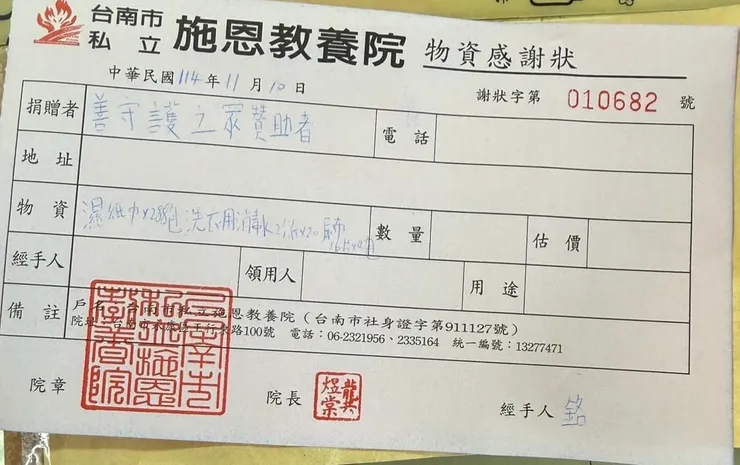 台南市私立 施恩教養院 物資感謝狀
中華民國 114 年 11 月 10 日 謝狀字第 010682 號
捐贈者 善守護之家贊助者 電話
地址
物資 濕紙巾x288包 洗衣用消 數量 估價
經手人 領用人 用途
備註 戶名：台南市私立施恩教養院（台南市社身證字第911127號）
院址：台南市永康區王行東路100號 電話：06-2321956、2335164 統一編號：13277471
院章 院長 龔煜棠 經手人 銘